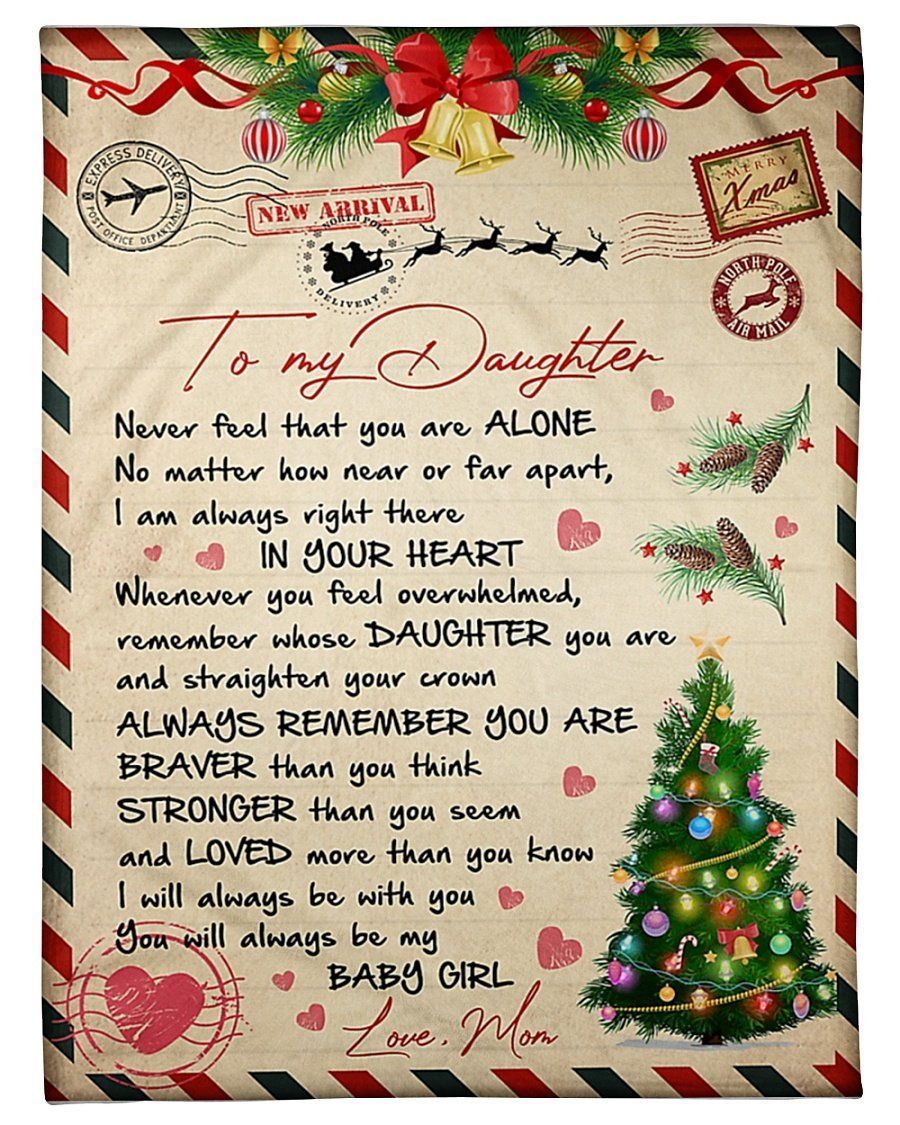 EXPRESS DELIVERY
POST OFFICE DEPARTMENT
NEW ARRIVAL
MERRY
Xmas
NORTH POLE
DELIVERY
NORTH POLE
AIR MAIL
To my Daughter
Never feel that you are ALONE
No matter how near or far apart,
I am always right there
IN YOUR HEART
Whenever you feel overwhelmed,
remember whose DAUGHTER you are
and straighten your crown
ALWAYS REMEMBER YOU ARE
BRAVER than you think
STRONGER than you seem
and LOVED more than you know
I will always be with you
You will always be my
BABY GIRL
Love, Mom